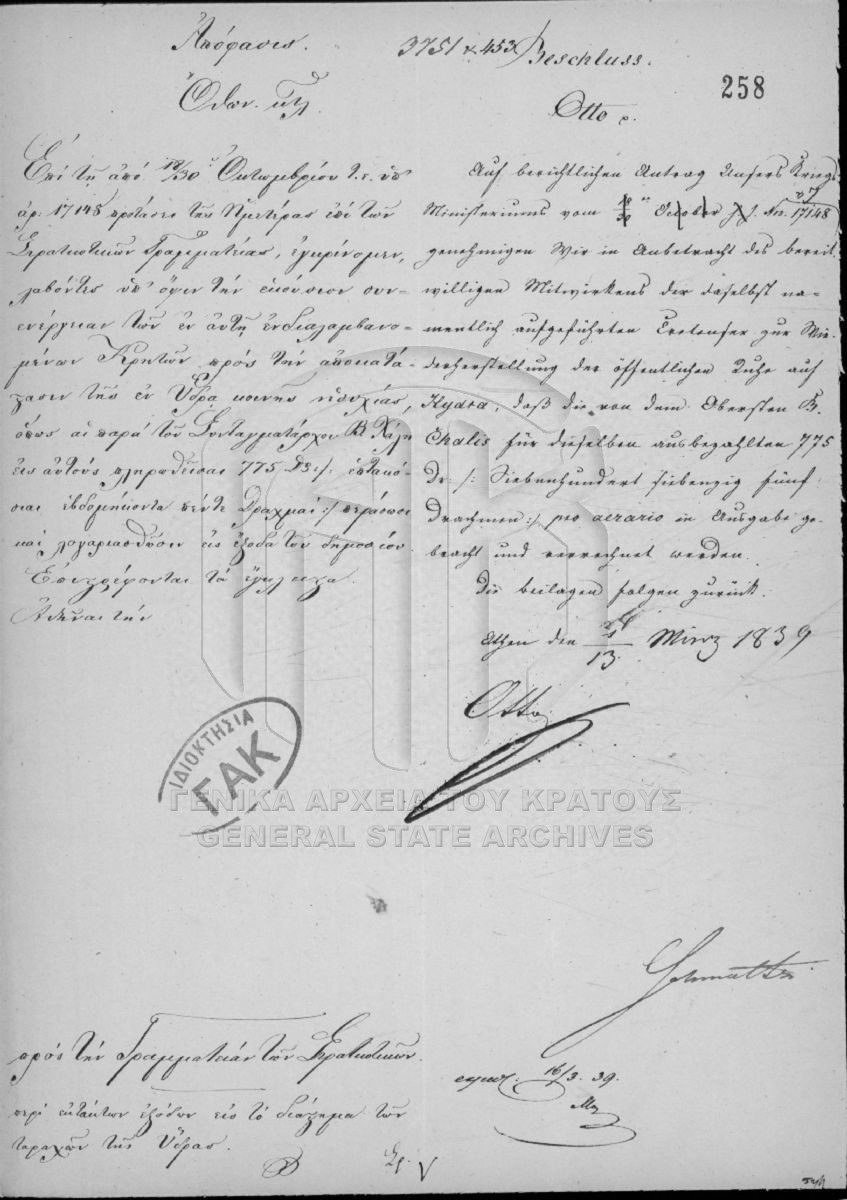 Ἀπόφασις.
3751 & 453
Beschluss.
258
Ὄθων κτλ
Otto p.
Ἐπὶ τῇ ἀπὸ 18/30 Ὀκτωμβρίου τ. ε. ὑπ'
ἀρ. 17148 προτάσει τῆς Ἡμετέρας ἐπὶ τῶν
Στρατιωτικῶν Γραμματείας, ἐγκρίνομεν,
λαβόντες ὑπ' ὄψιν τὴν ἑκούσιον συν-
ενέργειαν τῶν ἐν αὐτῇ ἐνδιαλαμβανο-
μένων Κρητῶν πρὸς τὴν ἀποκατά-
στασιν τῆς ἐν Ὕδρᾳ κοινῆς ἡσυχίας,
ὅπως αἱ παρὰ τοῦ Συνταγματάρχου Β. Χάλη
εἰς αὐτοὺς πληρωθεῖσαι 775 Δρ :/: ἑπτακό-
σιαι ἑβδομήκοντα πέντε Δραχμαί :/ περάσωσι
καὶ λογαριασθῶσιν εἰς ἔξοδα τοῦ δημοσίου.
Ἐπιστρέφονται τὰ ἔγκλειστα.
Ἀθῆναι τὴν
Auf berichtlichen Antrag Unsers Kriegs
Ministeriums vom 18/30 October v. J. No. 17148
genehmigen Wir in Anbetracht des bereit
willigen Mitwirkens der daselbst na-
mentlich aufgeführten Cretenser zur Wie-
derherstellung der öffentlichen Ruhe auf
Hydra, daß die von dem Obersten B.
Chalis für dieselben ausbezahlten 775
Dr. /: Siebenhundert siebenzig fünf
Drachmen :/ pro aerario in Ausgabe ge-
bracht und verrechnet werden.
Die Beilagen folgen zurück.
Athen den /13 März 1839
Otto
ΙΔΙΟΚΤΗΣΙΑ
ΓΑΚ
ΓΕΝΙΚΑ ΑΡΧΕΙΑ ΤΟΥ ΚΡΑΤΟΥΣ
GENERAL STATE ARCHIVES
Schmaltz
πρὸς τὴν Γραμματείαν τῶν Στρατιωτικῶν.
περὶ ἐκτάκτων ἐξόδων εἰς τὸ διάστημα τῶν
ταραχῶν τῆς Ὕδρας.
16/3. 39.